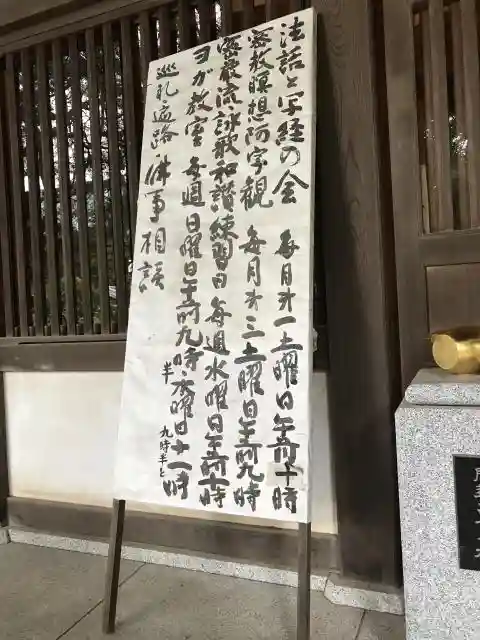 法話と写経の会 毎月才一土曜日午前十時
密教瞑想阿字観 毎月才三土曜日午前九時
密厳流詠歌和讃練習日 毎週水曜日午前十時
ヨガ教室 毎週日曜日午前九時半
水曜日十一時
九時半と
巡礼遍路 佛事相談